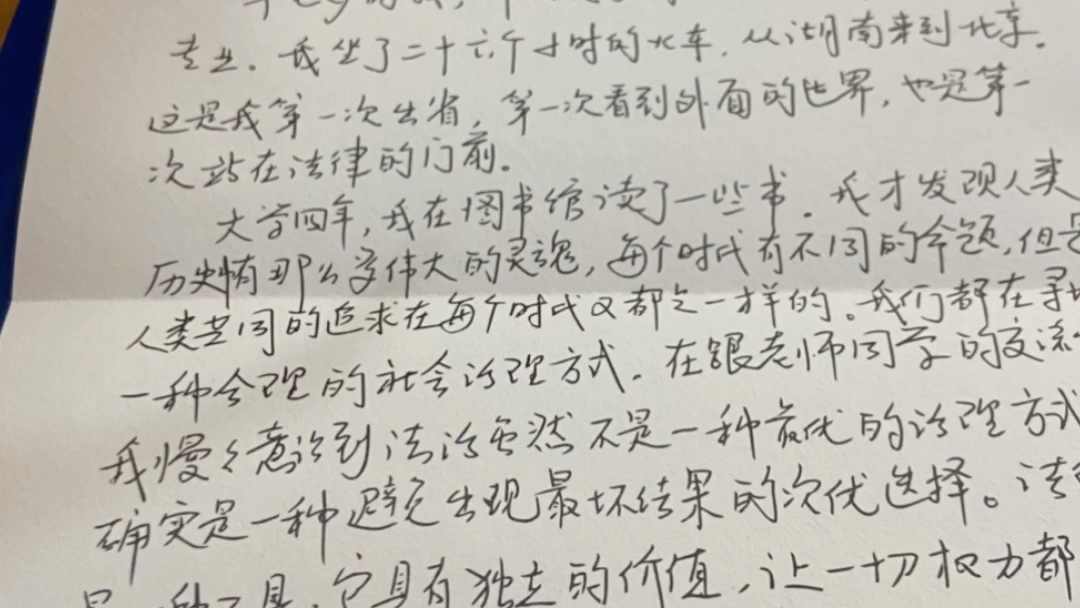 专业。我坐了二十六个小时的火车，从湖南来到北京。
这是我第一次出省，第一次看到外面的世界，也是第一
次站在法律的门前。
大学四年，我在图书馆读了一些书。我才发现人类
历史有那么多伟大的灵魂，每个时代有不同的命题，但是
人类共同的追求在每个时代又都是一样的。我们都在寻找
一种合理的社会治理方式。在跟老师同学的交流
我慢々意识到法治虽然不是一种最优的治理方式
确实是一种避免出现最坏结果的次优选择。法
是一种工具，它具有独立的价值，让一切权力都